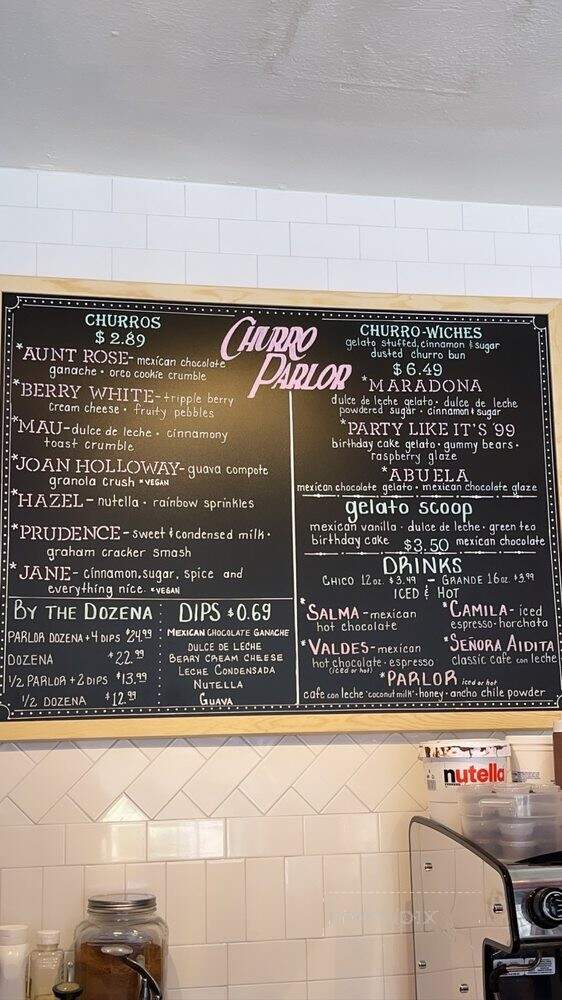 CHURRO
PARLOR
CHURROS
$2.89
*AUNT ROSE- mexican chocolate
ganache · oreo cookie crumble
*BERRY WHITE-tripple berry
cream cheese · fruity pebbles
*MAU-dulce de leche · cinnamony
toast crumble
*JOAN HOLLOWAY- guava compote
granola crush *VEGAN
*HAZEL- nutella · rainbow sprinkles
*PRUDENCE- sweet & condensed milk ·
graham cracker smash
*JANE- cinnamon, sugar, spice and
everything nice *VEGAN
BY THE DOZENA
PARLOR DOZENA + 4 DIPS $24.99
DOZENA $22.99
1/2 PARLOR + 2 DIPS $13.99
1/2 DOZENA $12.99
DIPS $0.69
MEXICAN CHOCOLATE GANACHE
DULCE DE LECHE
BERRY CREAM CHEESE
LECHE CONDENSADA
NUTELLA
GUAVA
CHURRO-WICHES
gelato stuffed, cinnamon & sugar
dusted churro bun
$6.49
*MARADONA
dulce de leche gelato · dulce de leche
powdered sugar · cinnamon & sugar
*PARTY LIKE IT'S '99
birthday cake gelato · gummy bears ·
raspberry glaze
*ABUELA
mexican chocolate gelato · mexican chocolate glaze
gelato scoop
mexican vanilla · dulce de leche · green tea
birthday cake $3.50 mexican chocolate
DRINKS
CHICO 12oz. $3.49 - GRANDE 16oz. $3.99
ICED & HOT
*SALMA-mexican
hot chocolate
*CAMILA- iced
espresso · horchata
*VALDES-mexican
hot chocolate · espresso
(iced or hot)
*SEÑORA AIDITA
classic cafe con leche
*PARLOR iced or hot
cafe con leche "coconut milk" · honey · ancho chile powder
nutella